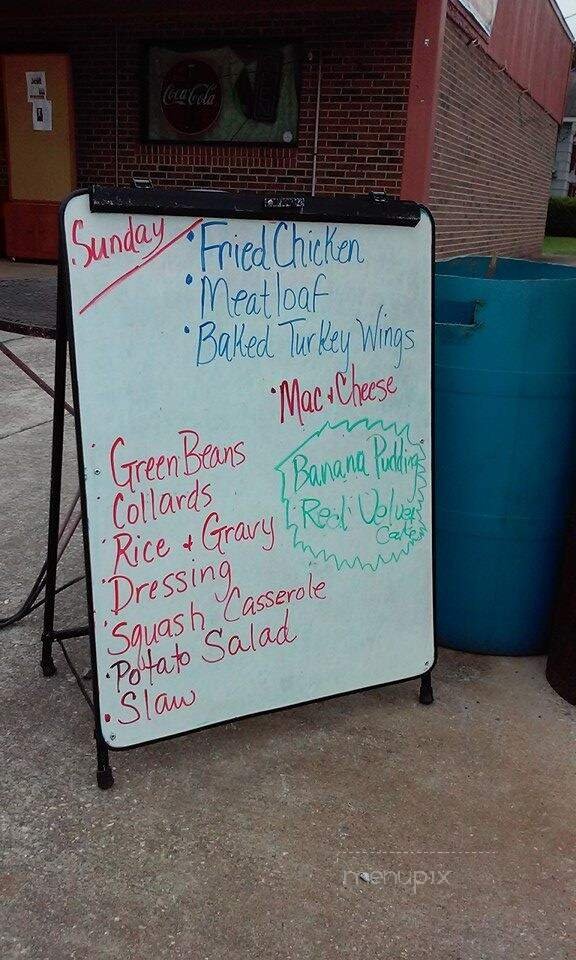 Coca-Cola
Sunday
• Fried Chicken
• Meatloaf
• Baked Turkey Wings
• Mac & Cheese
• Green Beans
• Collards
• Rice & Gravy
• Dressing
• Squash Casserole
• Potato Salad
• Slaw
Banana Pudding
Red Velvet
Cake
menupix